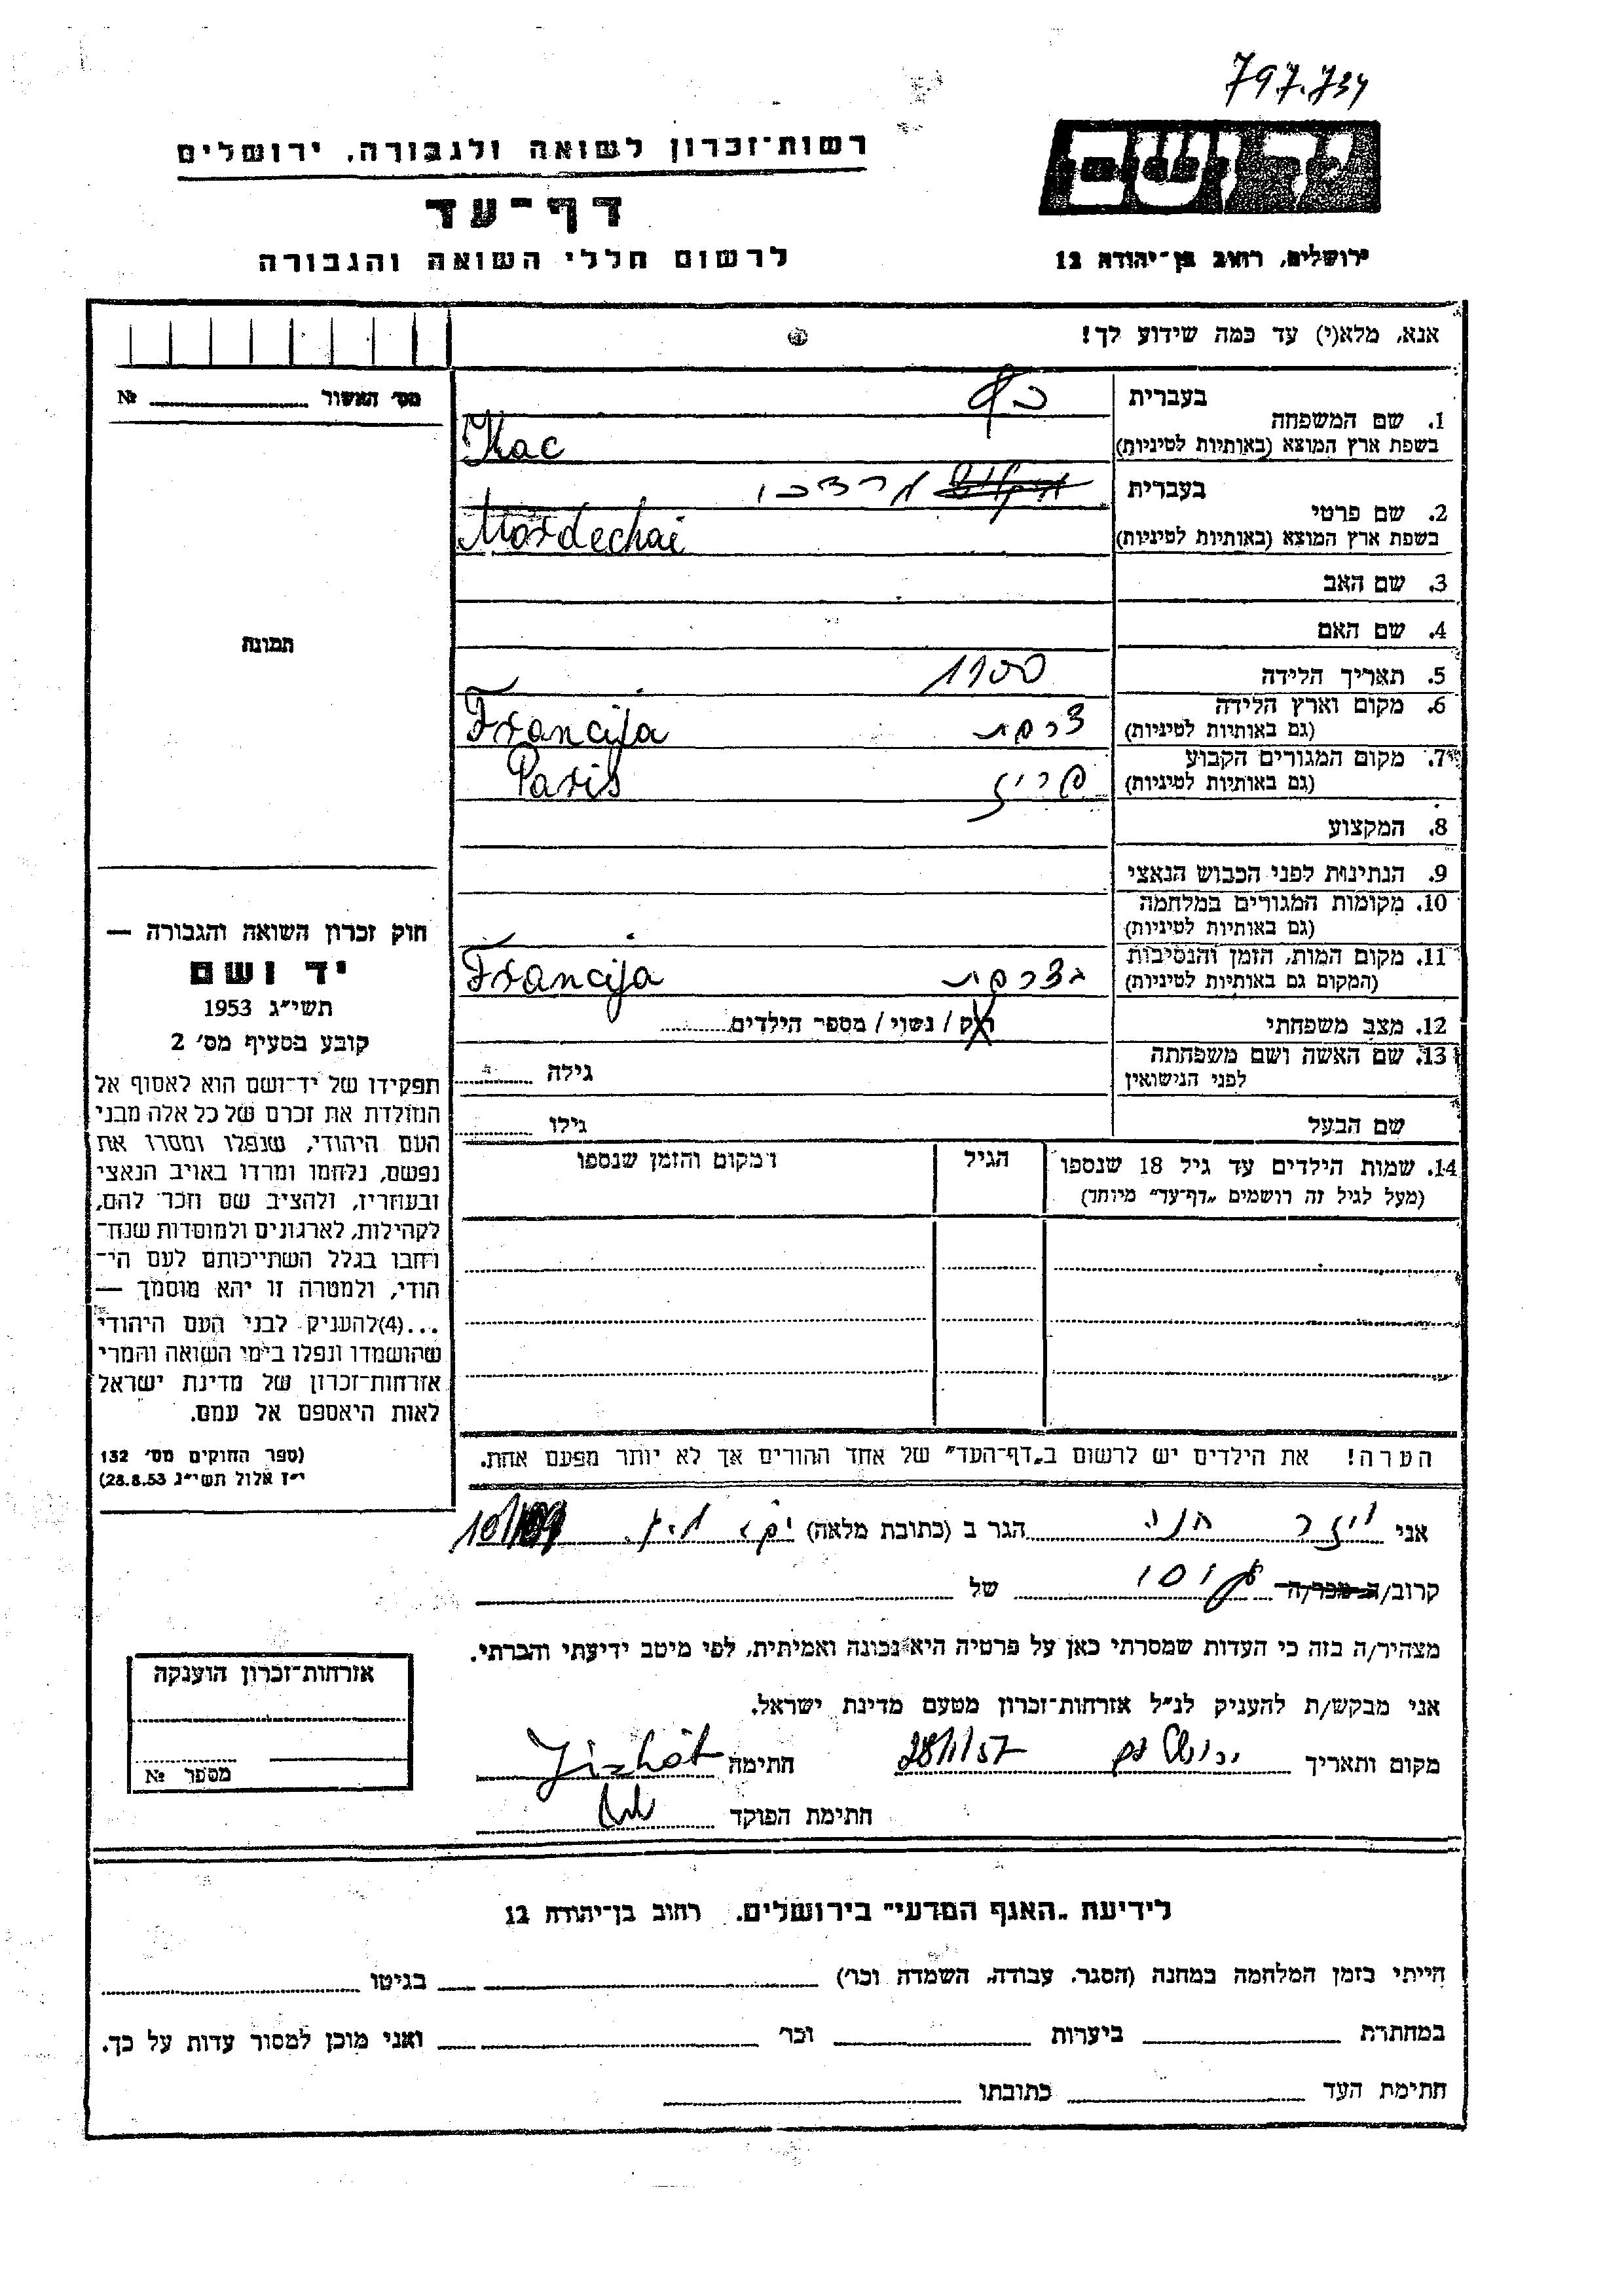 797.734
רשות־זכרון לשואה ולגבורה, ירושלים
יד ושם
דף־עד
לרשום חללי השואה והגבורה
ירושלים, רחוב בן־יהודה 12
אנא, מלא(י) עד כמה שידוע לך!
מס׳ האשור № 
1. שם המשפחה
בעברית כץ
בשפת ארץ המוצא (באותיות לטיניות) Kac
2. שם פרטי
בעברית מרדכי
בשפת ארץ המוצא (באותיות לטיניות) Mordechai
3. שם האב
4. שם האם
5. תאריך הלידה 1900
6. מקום וארץ הלידה צרפת Francija
(גם באותיות לטיניות)
7. מקום המגורים הקבוע פריז Paris
(גם באותיות לטיניות)
8. המקצוע
9. הנתינות לפני הכבוש הנאצי
10. מקומות המגורים במלחמה
(גם באותיות לטיניות)
11. מקום המות, הזמן והנסיבות בצרפת Francija
(המקום גם באותיות לטיניות)
12. מצב משפחתי רוק / נשוי / מספר הילדים
13. שם האשה ושם משפחתה גילה
לפני הנישואין
שם הבעל גילו
14. שמות הילדים עד גיל 18 שנספו הגיל המקום והזמן שנספו
(מעל לגיל זה רושמים „דף־עד״ מיוחד)
הערה! את הילדים יש לרשום ב„דף־העד״ של אחד ההורים אך לא יותר מפעם אחת.
תמונה
חוק זכרון השואה והגבורה —
יד ושם
תשי״ג 1953
קובע בסעיף מס׳ 2
תפקידו של יד־ושם הוא לאסוף אל
המולדת את זכרם של כל אלה מבני
העם היהודי, שנפלו ומסרו את
נפשם, נלחמו ומרדו באויב הנאצי
ובעוזריו, ולהציב שם וזכר להם,
לקהילות, לארגונים ולמוסדות שנח־
רחבו בגלל השתייכותם לעם הי־
הודי, ולמטרה זו יהא מוסמך —
...(4)להעניק לבני העם היהודי
שהושמדו ונפלו בימי השואה והמרי
אזרחות־זכרון של מדינת ישראל
לאות היאספם אל עמם.
(ספר החוקים מס׳ 132
י״ז אלול תשי״ג 28.8.53)
אני חנה הגר ב (כתובת מלאה)
קרוב/ה מכר/ה של
מצהיר/ה בזה כי העדות שמסרתי כאן על פרטיה היא נכונה ואמיתית, לפי מיטב ידיעתי והכרתי.
אני מבקש/ת להעניק לנ״ל אזרחות־זכרון מטעם מדינת ישראל.
מקום ותאריך ירושלים 28/1/57 חתימה
חתימת הפוקד
אזרחות־זכרון הוענקה
מספר №
לידיעת „האגף המדעי״ בירושלים, רחוב בן־יהודה 12
הייתי בזמן המלחמה במחנה (הסגר, עבודה, השמדה וכו׳) בגיטו
במחתרת ביערות וכו׳ ואני מוכן למסור עדות על כך.
חתימת העד כתובתו